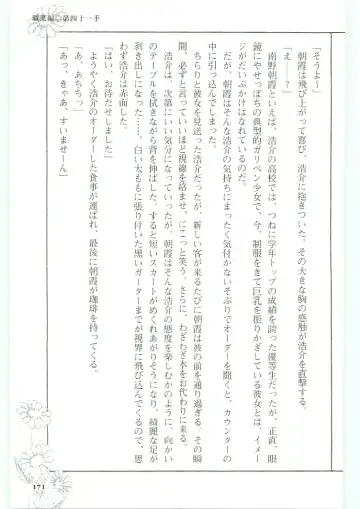 職業編◎第四十一手
「そうよ～」
「え――？」
朝霞は飛び上がって喜び、浩介に抱きついた。その大きな胸の感触が浩介を直撃する。
南野朝霞といえば、浩介の高校では、つねに学年トップの成績を誇った優等生だったが、正直、眼
鏡にやせっぽちの典型的ガリベン少女で、今、制服をきて巨乳を振りかざしている彼女とは、イメー
ジがだいぶかけはなれているのだ。
だが、朝霞はそんな浩介の気持ちにまったく気付かないそぶりでオーダーを聞くと、カウンターの
中に引っ込んでしまった。
ちらりと彼女を見送った浩介だったが、新しい客が来るたびに朝霞は彼の前を通り過ぎる。その瞬
間、必ずと言っていいほど視線を絡ませ、にこっと笑う。さらに、わざわざ水をお代わりに来る。
浩介は、次第にいい気分になっていったが、朝霞はそんな浩介の態度を楽しむかのように、向かい
のテーブルを拭きながら背を伸ばした。すると短いスカートがめくれあがりそうになり、綺麗な足が
剥き出しになった……。白い太ももに張り付いた黒いガーターまでが視界に飛び込んでくるので、思
わず浩介は赤面した。
「はい、お待たせしました」
ようやく浩介のオーダーした食事が運ばれ、最後に朝霞が珈琲を持ってくる。
「あ、あちちっ」
「あっ、きゃあ、すいませーん」
171